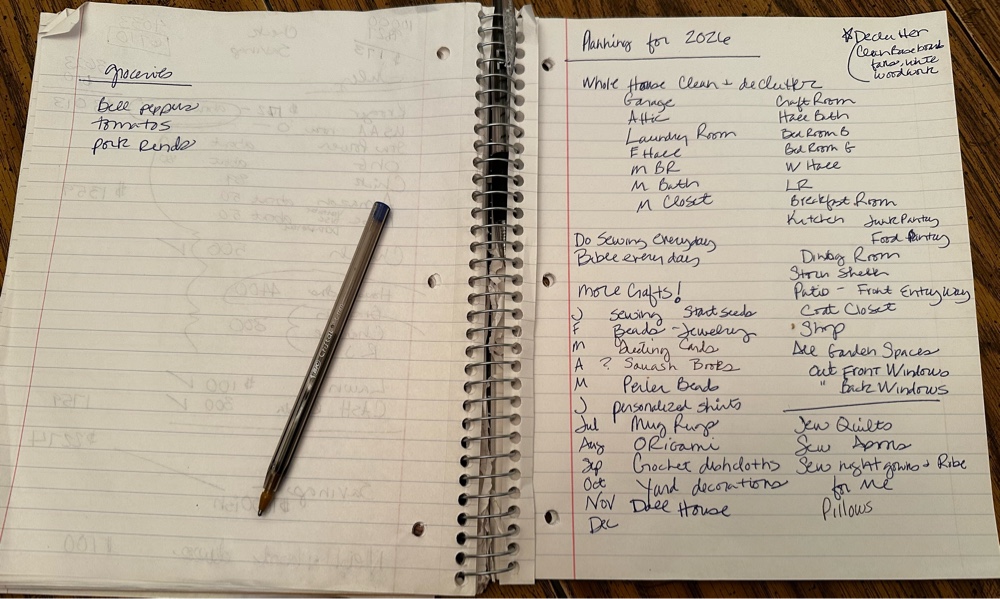 groceries
Bell peppers
tomatos
pork rends
Planning for 2026
*Declutter
Clean Baseboard
fans, white
woodwork
Whole House Clean + declutter
Garage
Craft Room
Attic
Hall Bath
Laundry Room
Bed Room B
F Hall
Bed Room G
M BR
W Hall
M Bath
LR
M Closet
Breakfast Room
Kitchen Junk Pantry
Food Pantry
Do Sewing everyday
Bible every day
Dining Room
More Crafts!
Patio - Front Entryway
J sewing Start seeds
Coat Closet
F Beads - Jewelry
Shop
M Cards
All Garden Spaces
A ? Squash Books
Out Front Windows
M Perler Beads
" Back Windows
J personalized shirts
Jul Mug Rugs
Sew Quilts
Aug ORigami
Sew Aprons
Sep Crochet dishcloths
Sew nightgowns + Robe
Oct Yard decorations
for me
Nov Doll House
Pillows
Dec